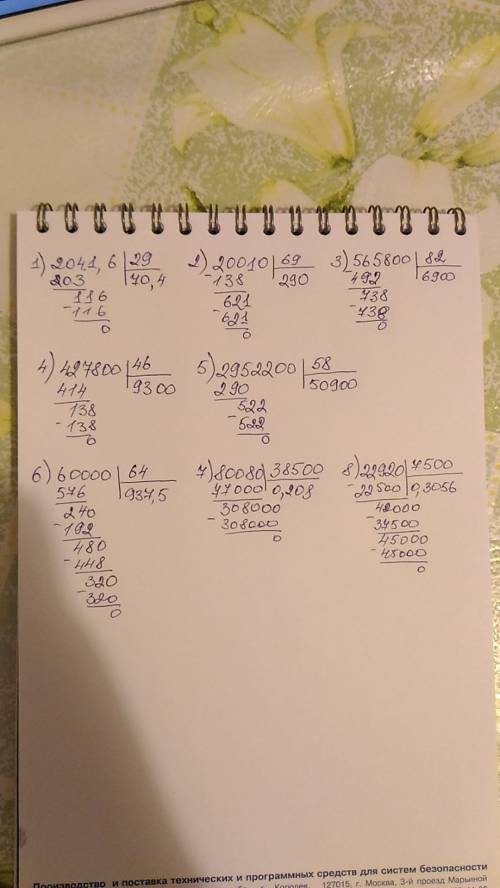 1) 2041,6 | 29
203 | 70,4
116
- 116
0
2) 20010 | 69
- 138 | 290
621
- 621
0
3) 565800 | 82
- 492 | 6900
738
- 738
0
4) 427800 | 46
414 | 9300
138
- 138
0
5) 2952200 | 58
290 | 50900
522
- 522
0
6) 60000 | 64
576 | 937,5
240
- 192
480
- 448
320
- 320
0
7) 80080 | 38500
77000 | 0,208
308000
- 308000
0
8) 22920 | 7500
- 22500 | 0,3056
42000
- 37500
45000
- 45000
0
Производство и поставка технических и программных средств для систем безопасности
127015, г. Москва, 3-й проезд Марьиной